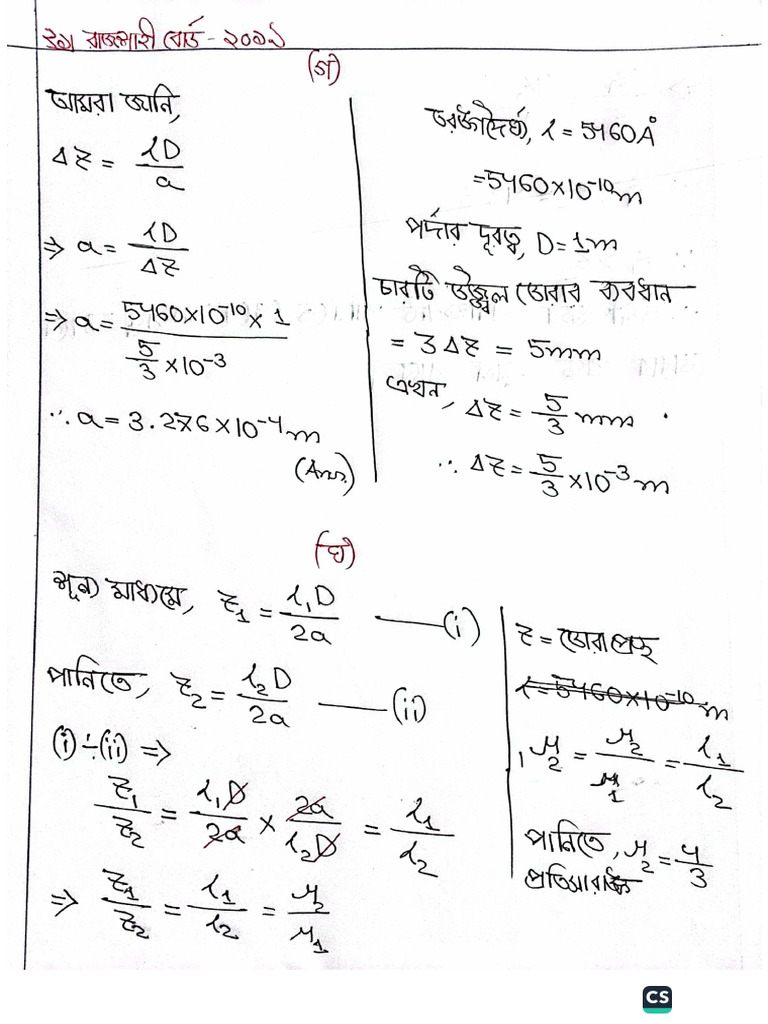 রাজশাহী বোর্ড - ২০১৯
(গ)
আমরা জানি,
ΔZ = λD/a
⇒ a = λD/ΔZ
⇒ a = (5460×10⁻¹⁰ × 1)/(5/3 ×10⁻³)
∴ a = 3.276×10⁻⁴ m
(Ans.)
তরঙ্গদৈর্ঘ্য, λ = 5460 A°
= 5460×10⁻¹⁰ m
পর্দার দূরত্ব, D = 1m
চারটি উজ্জ্বল ডোরার ব্যবধান
= 3ΔZ = 5mm
এখন, ΔZ = 5/3 mm
∴ ΔZ = 5/3 ×10⁻³ m
(ঘ)
শূন্য মাধ্যমে, Z₁ = λ₁D/2a ——(i)
পানিতে, Z₂ = λ₂D/2a ——(ii)
(i)÷(ii) ⇒
Z₁/Z₂ = λ₁D/2a × 2a/λ₂D = λ₁/λ₂
⇒ Z₁/Z₂ = λ₁/λ₂ = μ₂/μ₁
Z = ডোরা প্রস্থ
λ = 5460×10⁻¹⁰ m
₁μ₂ = μ₂/μ₁ = λ₁/λ₂
পানিতে, μ₂ = 4/3
প্রতিসরাঙ্ক
CS